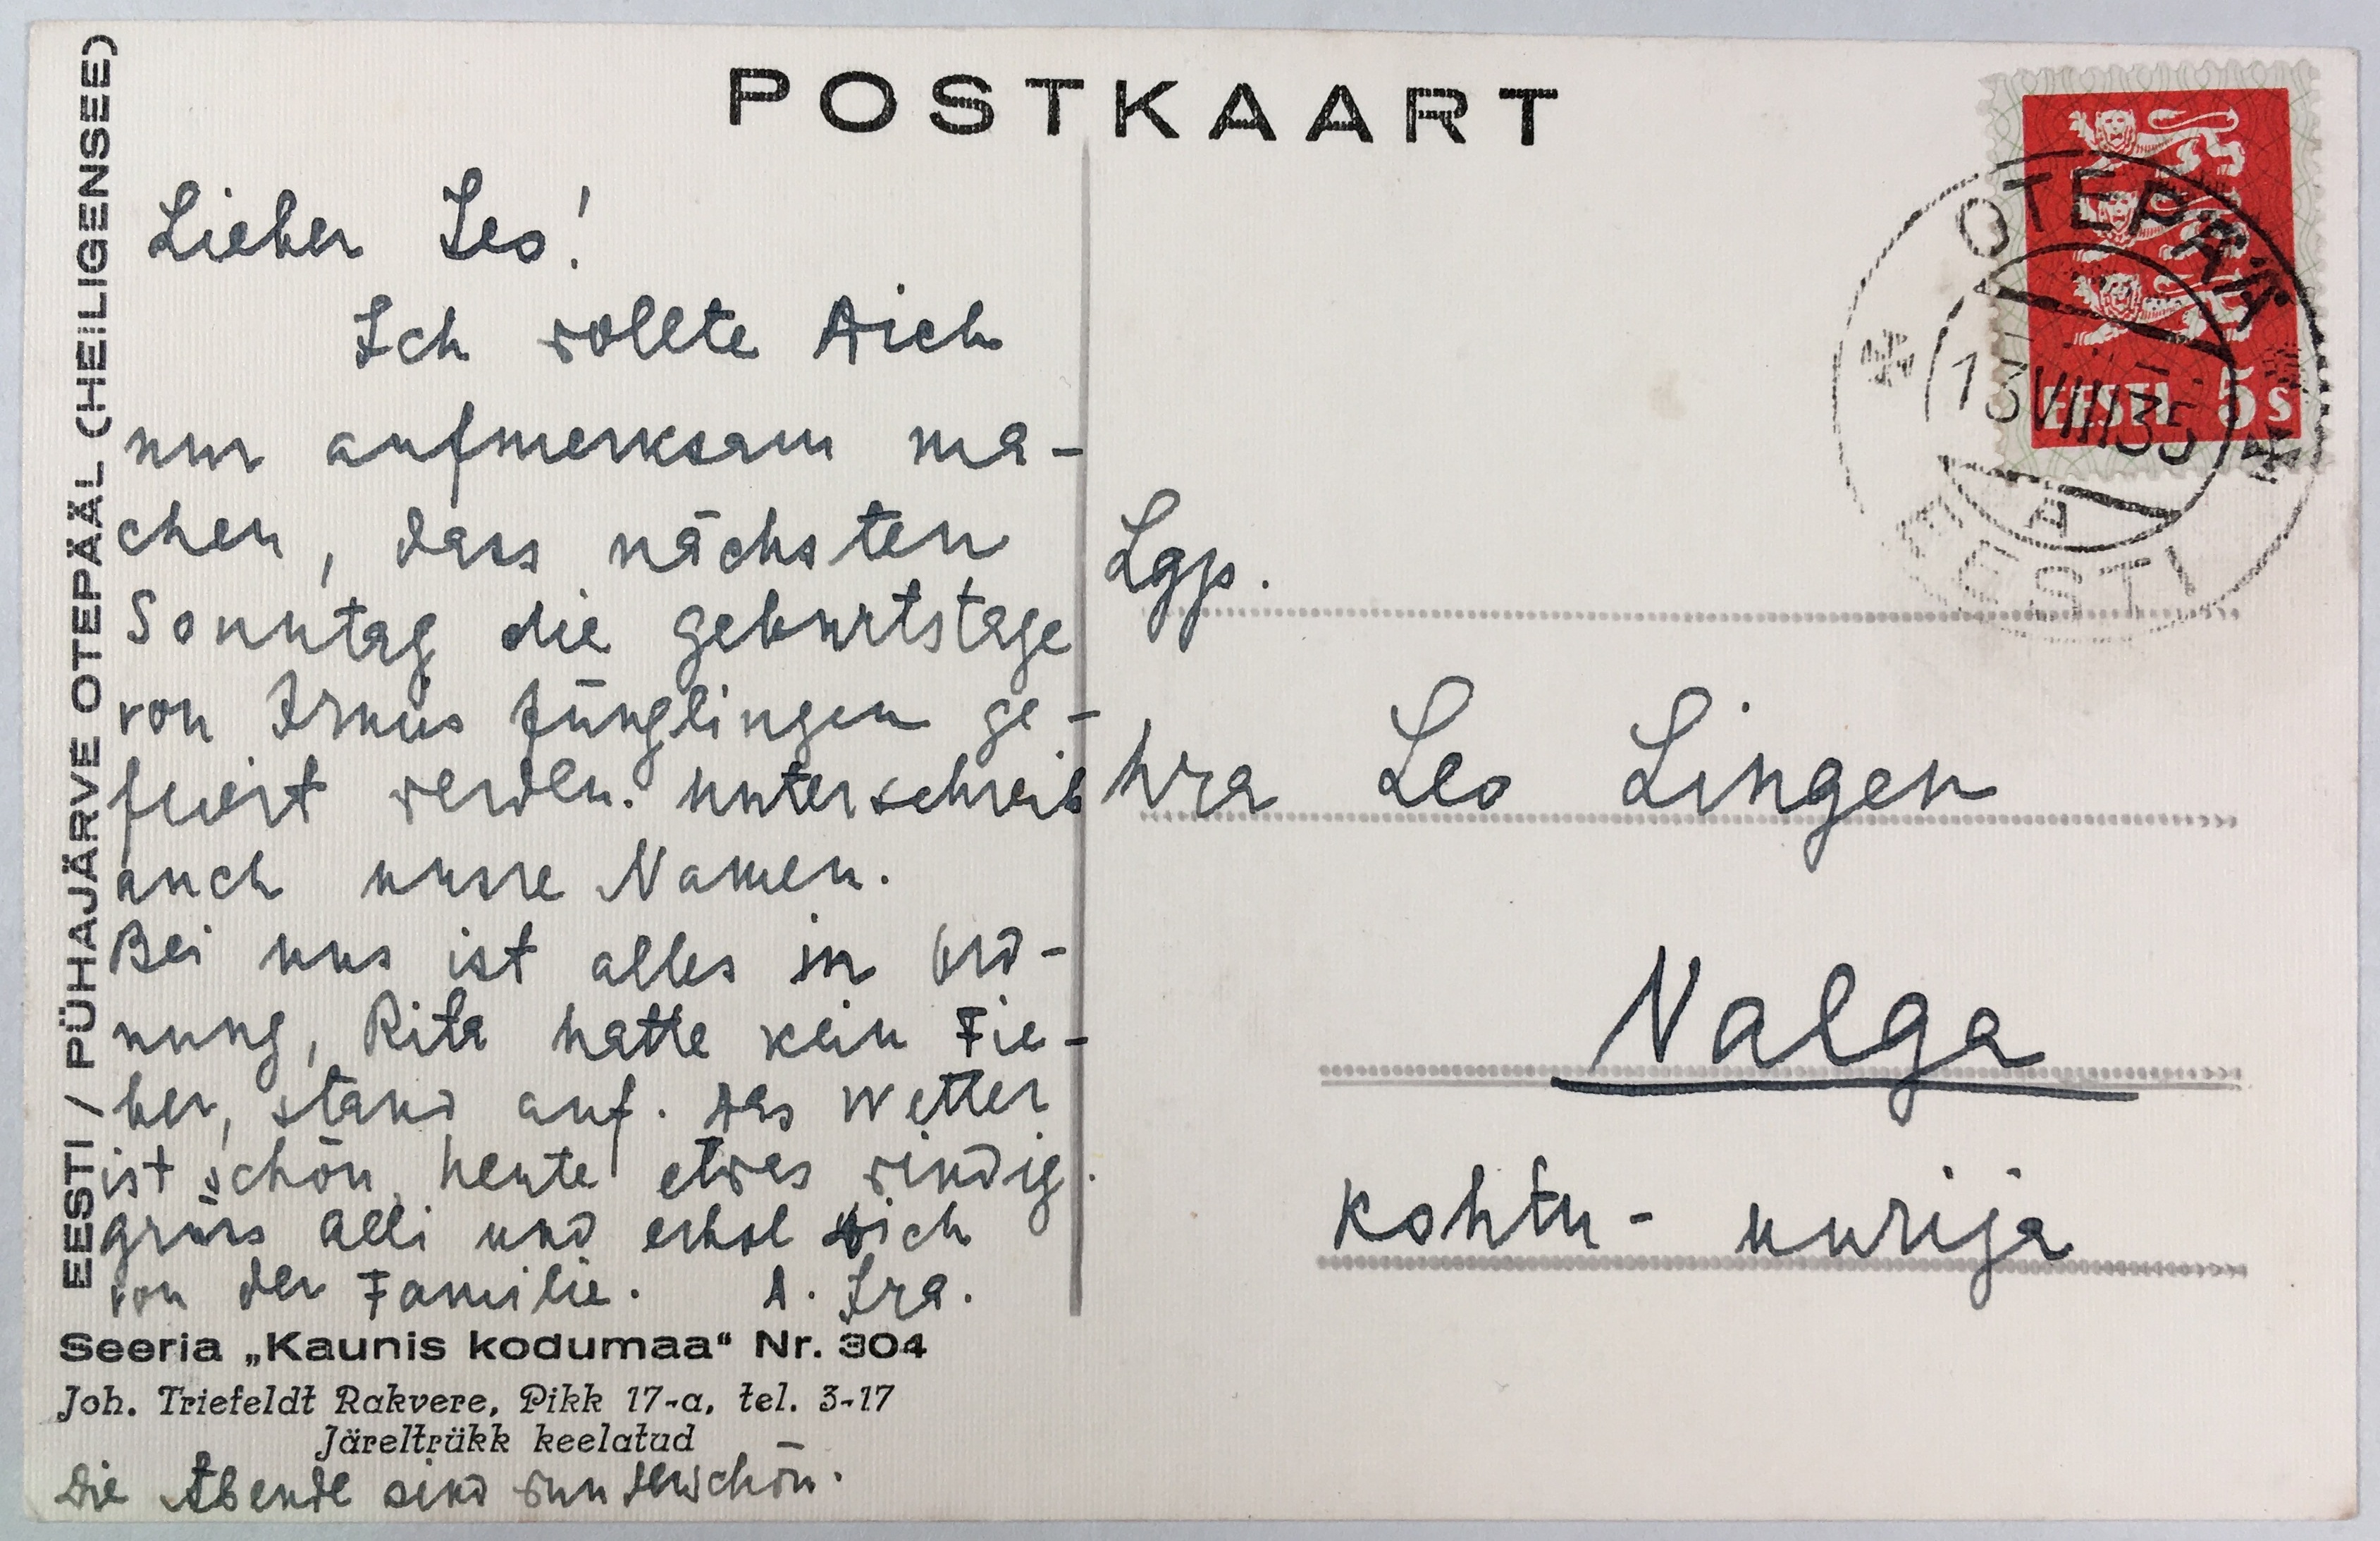 POSTKAART
EESTI / PÜHAJÄRVE OTEPÄÄL (HEILIGENSEE)
Lieber Leo!
Ich wollte Dich
nur aufmerksam ma-
chen, dass nächsten
Sonntag die Geburtstage
von Jünglingen ge-
feiert werden. Unterschreib
auch unsre Namen.
Bei uns ist alles in Ord-
nung, Rita hatte kein Fie-
ber, stand auf. Das Wetter
ist schön, heute etwas windig.
Grüss Alli und erhol Dich
von der Familie. D. Ira.
Seeria „Kaunis kodumaa“ Nr. 304
Joh. Triefeldt Rakvere, Pikk 17-a, tel. 3-17
Järeltrükk keelatud
Die Abende sind wunderschön.
OTEPÄÄ
13 VIII 35
A
EESTI
EESTI 5 s
Lgp.
hra Leo Lingen
Valga
Kohtu-uurija